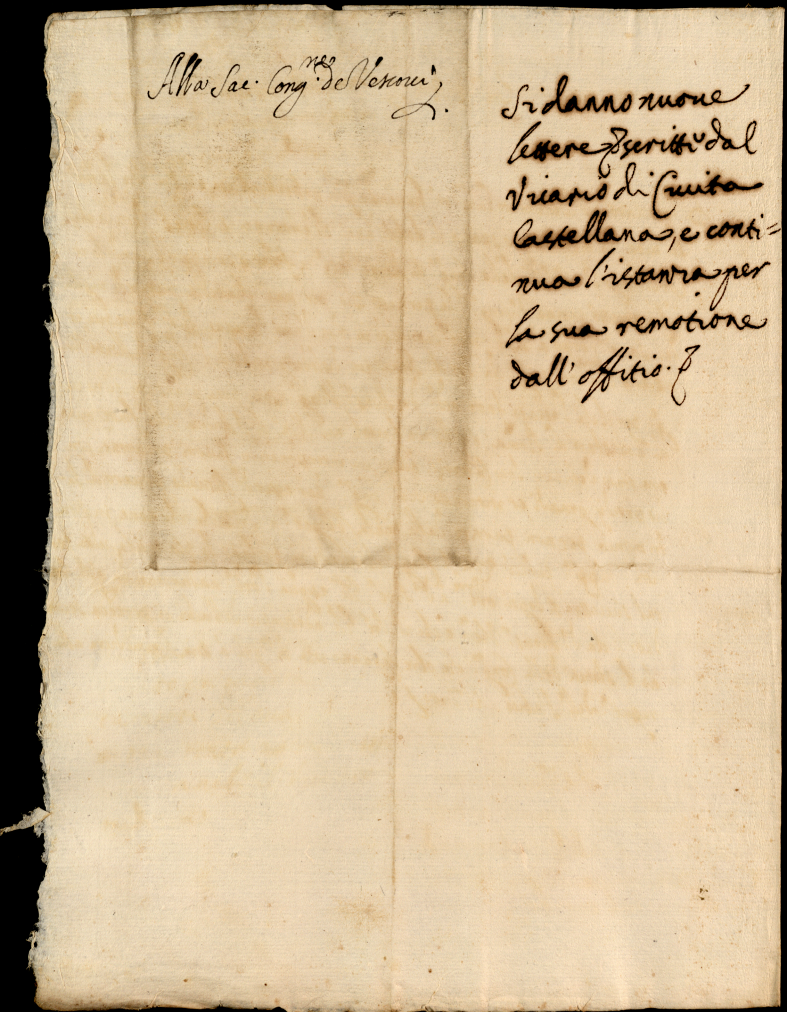 Alla Sac. Cong.ne de Vescovi
Si danno nuove
lettere scritte dal
Vicario di Civita
Castellana, e conti=
nua l'istanza per
la sua remotione
dall'offitio.